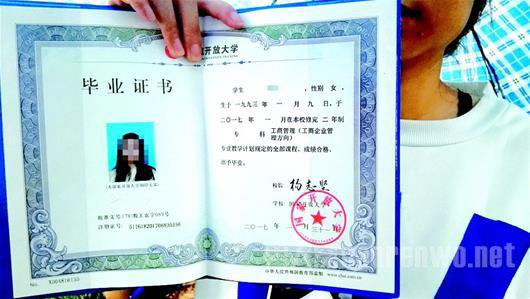 开放大学
毕业证书
批准文号:(78)教工农字089号
注册证号:511618201706835156
No. X004816150
学生 ,性别 女,
生于一九九三年 一 月 九 日,于
二〇一七年 一 月在本校修完 二 年制
专 科 工商管理(工商企业管
理方向)
专业教学计划规定的全部课程,成绩合格,
准予毕业。
校长: 杨志坚
学校: 国家开放大学
二〇一七年 一 月三十
中华人民共和国教育部监制 www.chsi.com.cn
renwo.net